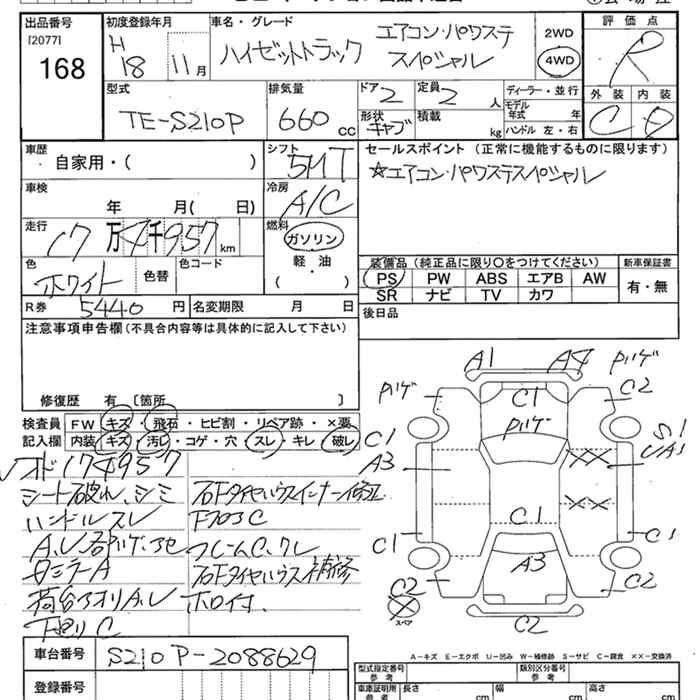 出品番号 初度登録年月 車名・グレード 評価点
[2077] H エアコン・パワステ 2WD
168 18 11月 ハイゼットトラック スペシャル 4WD R
型式 排気量 ドア 定員 ディーラー・並行 外装 内装
TE-S210P 660 cc 2 2 人 モデル年式 年 C D
形状 積載 kg ハンドル 左・右
キャブ
車歴 シフト セールスポイント (正常に機能するものに限ります)
自家用・( ) 5MT ☆エアコン・パワステスペシャル
車検 冷房
年 月( 日) A/C
走行 燃料
17万4千957km ガソリン
色 色替 色コード 軽・油
ホワイト ( ・ )
装備品 (純正品に限り〇をつけてください) 新車保証書
PS PW ABS エアB AW 有・無
SR ナビ TV カワ
R券 5440円 名変期限 月 日 後日品
注意事項申告欄 (不具合内容等は具体的に記入して下さい)
修復歴 有 〔箇所 〕
検査員 FW キズ・飛石・ヒビ割・リペア跡・×要
記入欄 内装 キズ・汚レ・コゲ・穴・スレ・キレ・破レ
174957
シート破れ、シミ
ハンドルスレ
ミラーA
荷台アオリA.U
下廻りC
右Fタイヤハウスインナー修正
フレームC、クレ
右Fタイヤハウス補修
ホロ付.
A1 A4 ハゲ
ハゲ C1 C2
ハゲ
C1 S1
A3 UA1
XX
XX
C1 C1 C1
A3
C2 C2
スペア C2
A-キズ E-エクボ U-凹み W-補修跡 S-サビ C-腐食 ××-交換済
車台番号 S210P-2088629
型式指定番号 類別区分番号
参考 参考
登録番号 車庫証明用 長さ cm 幅 cm 高さ cm
参考